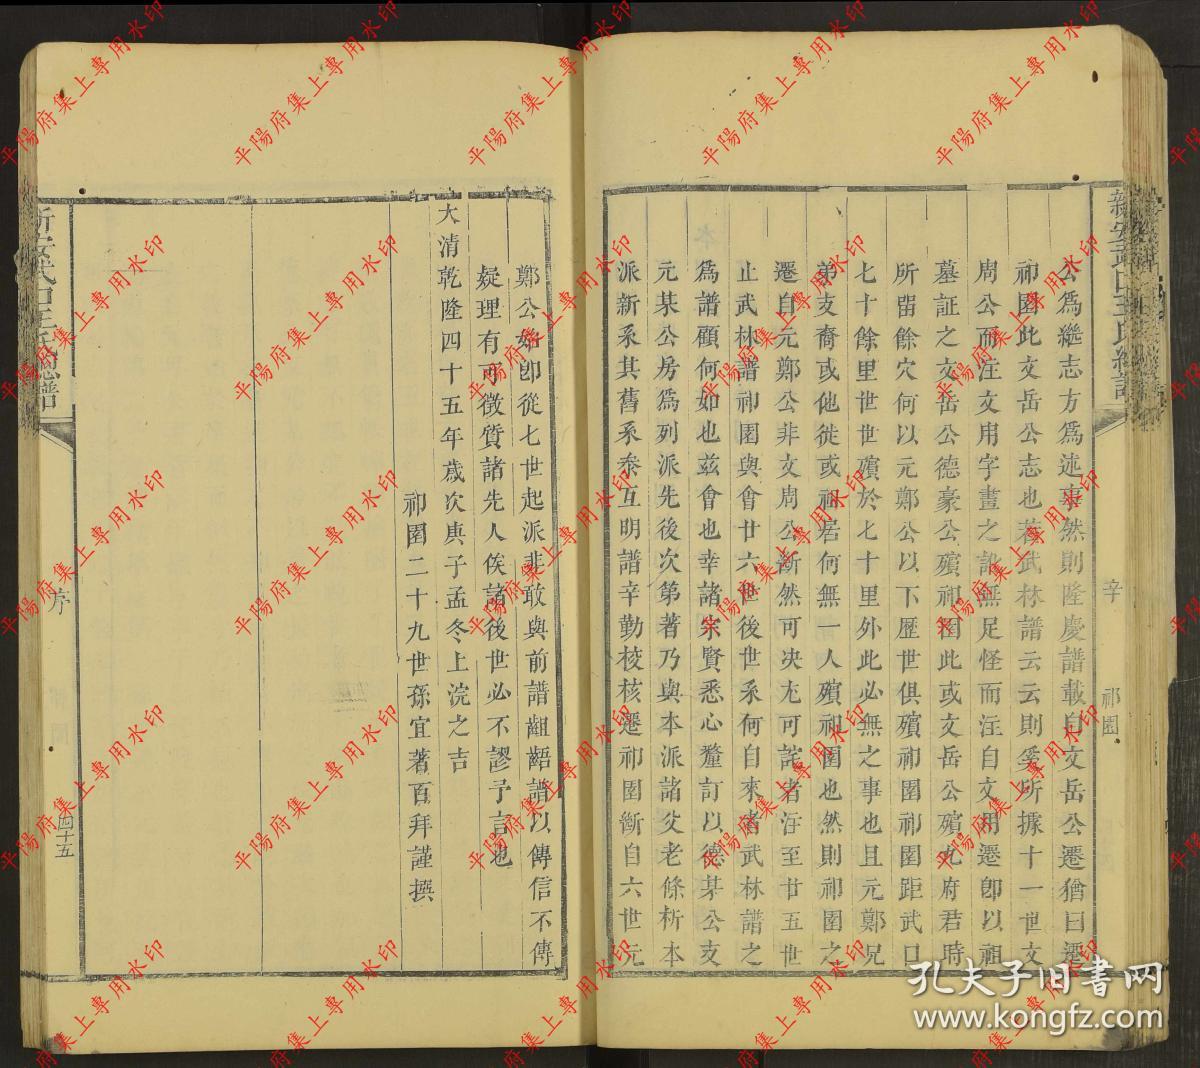 公爲繼志方爲述事然則隆慶譜載自文岳公遷猶曰遷
祁圄此文岳公志也若武林譜云云則奚所據十一世文
周公而注文用字畫之訛無足怪而注自文用遷卽以祖
墓証之文岳公德豪公殯祁圄此或文岳公殯尤府君時
所留餘穴何以元鄭公以下歷世俱殯祁圄祁圄距武口
七十餘里世世殯於七十里外此必無之事也且元鄭兄
弟支裔或他徙或祖居何無一人殯祁圄也然則祁圄之
遷自元鄭公非文周公斷然可决尤可詫者注至廿五世
止武林譜祁圄與會廿六世後世系何自來者武林譜之
爲譜顧何如也茲會也幸諸宗賢悉心釐訂以德某公支
元某公房爲列派先後次第著乃與本派諸父老條析本
派新系其舊系叅互明譜辛勤校核遷祁圄斷自六世元
辛
祁圄
鄭公始卽從七世起派非敢與前譜齟齬譜以傳信不傳
疑理有可徵質諸先人俟諸後世必不謬予言也
大清乾隆四十五年歲次庚子孟冬上浣之吉
祁圄二十九世孫宜著百拜謹撰
序
四十五
平陽府集上專用水印
孔夫子旧书网
www.kongfz.com